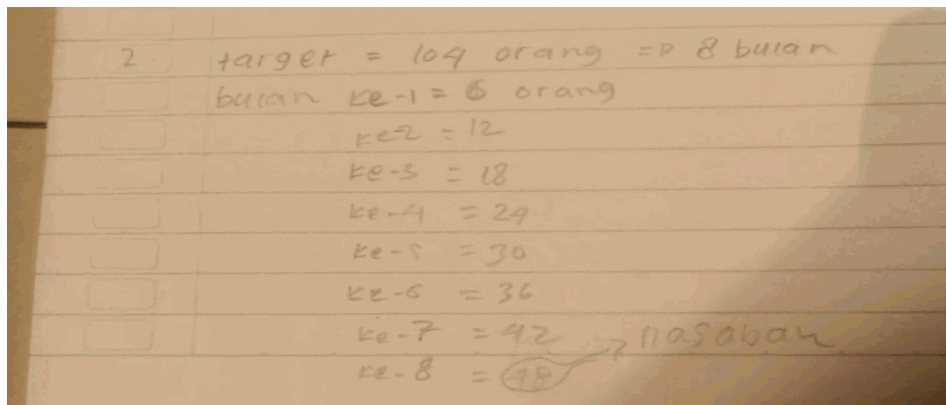 2. target = 104 orang => 8 bulan
bulan ke-1 = 6 orang
ke-2 = 12
ke-3 = 18
ke-4 = 24
ke-5 = 30
ke-6 = 36
ke-7 = 42
ke-8 = 48 → nasabah